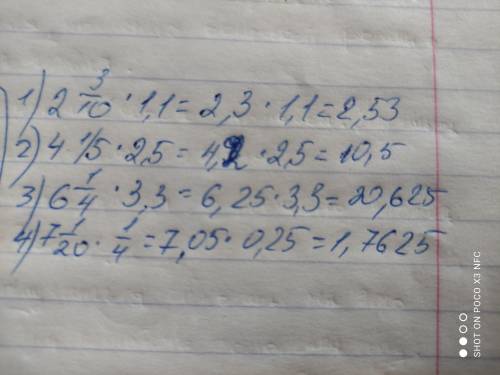 1) 2 3/10 · 1,1 = 2,3 · 1,1 = 2,53
2) 4 1/5 · 2,5 = 4,2 · 2,5 = 10,5
3) 6 1/4 · 3,3 = 6,25 · 3,3 = 20,625
4) 7 1/20 · 1/4 = 7,05 · 0,25 = 1,7625
SHOT ON POCO X3 NFC